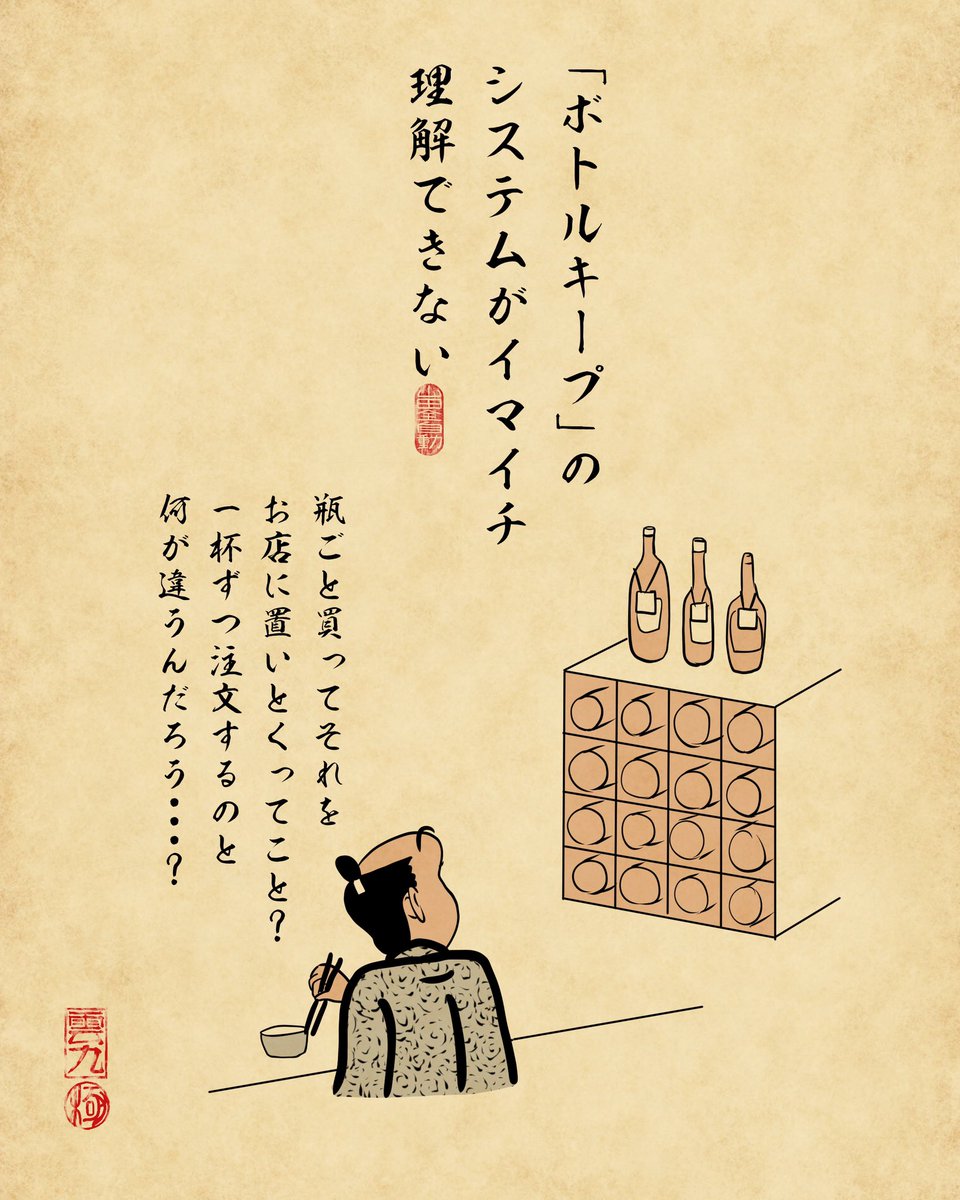 「ボトルキープ」の
システムがイマイチ
理解できない
瓶ごと買ってそれを
お店に置いとくってこと?
一杯ずつ注文するのと
何が違うんだろう・・・?